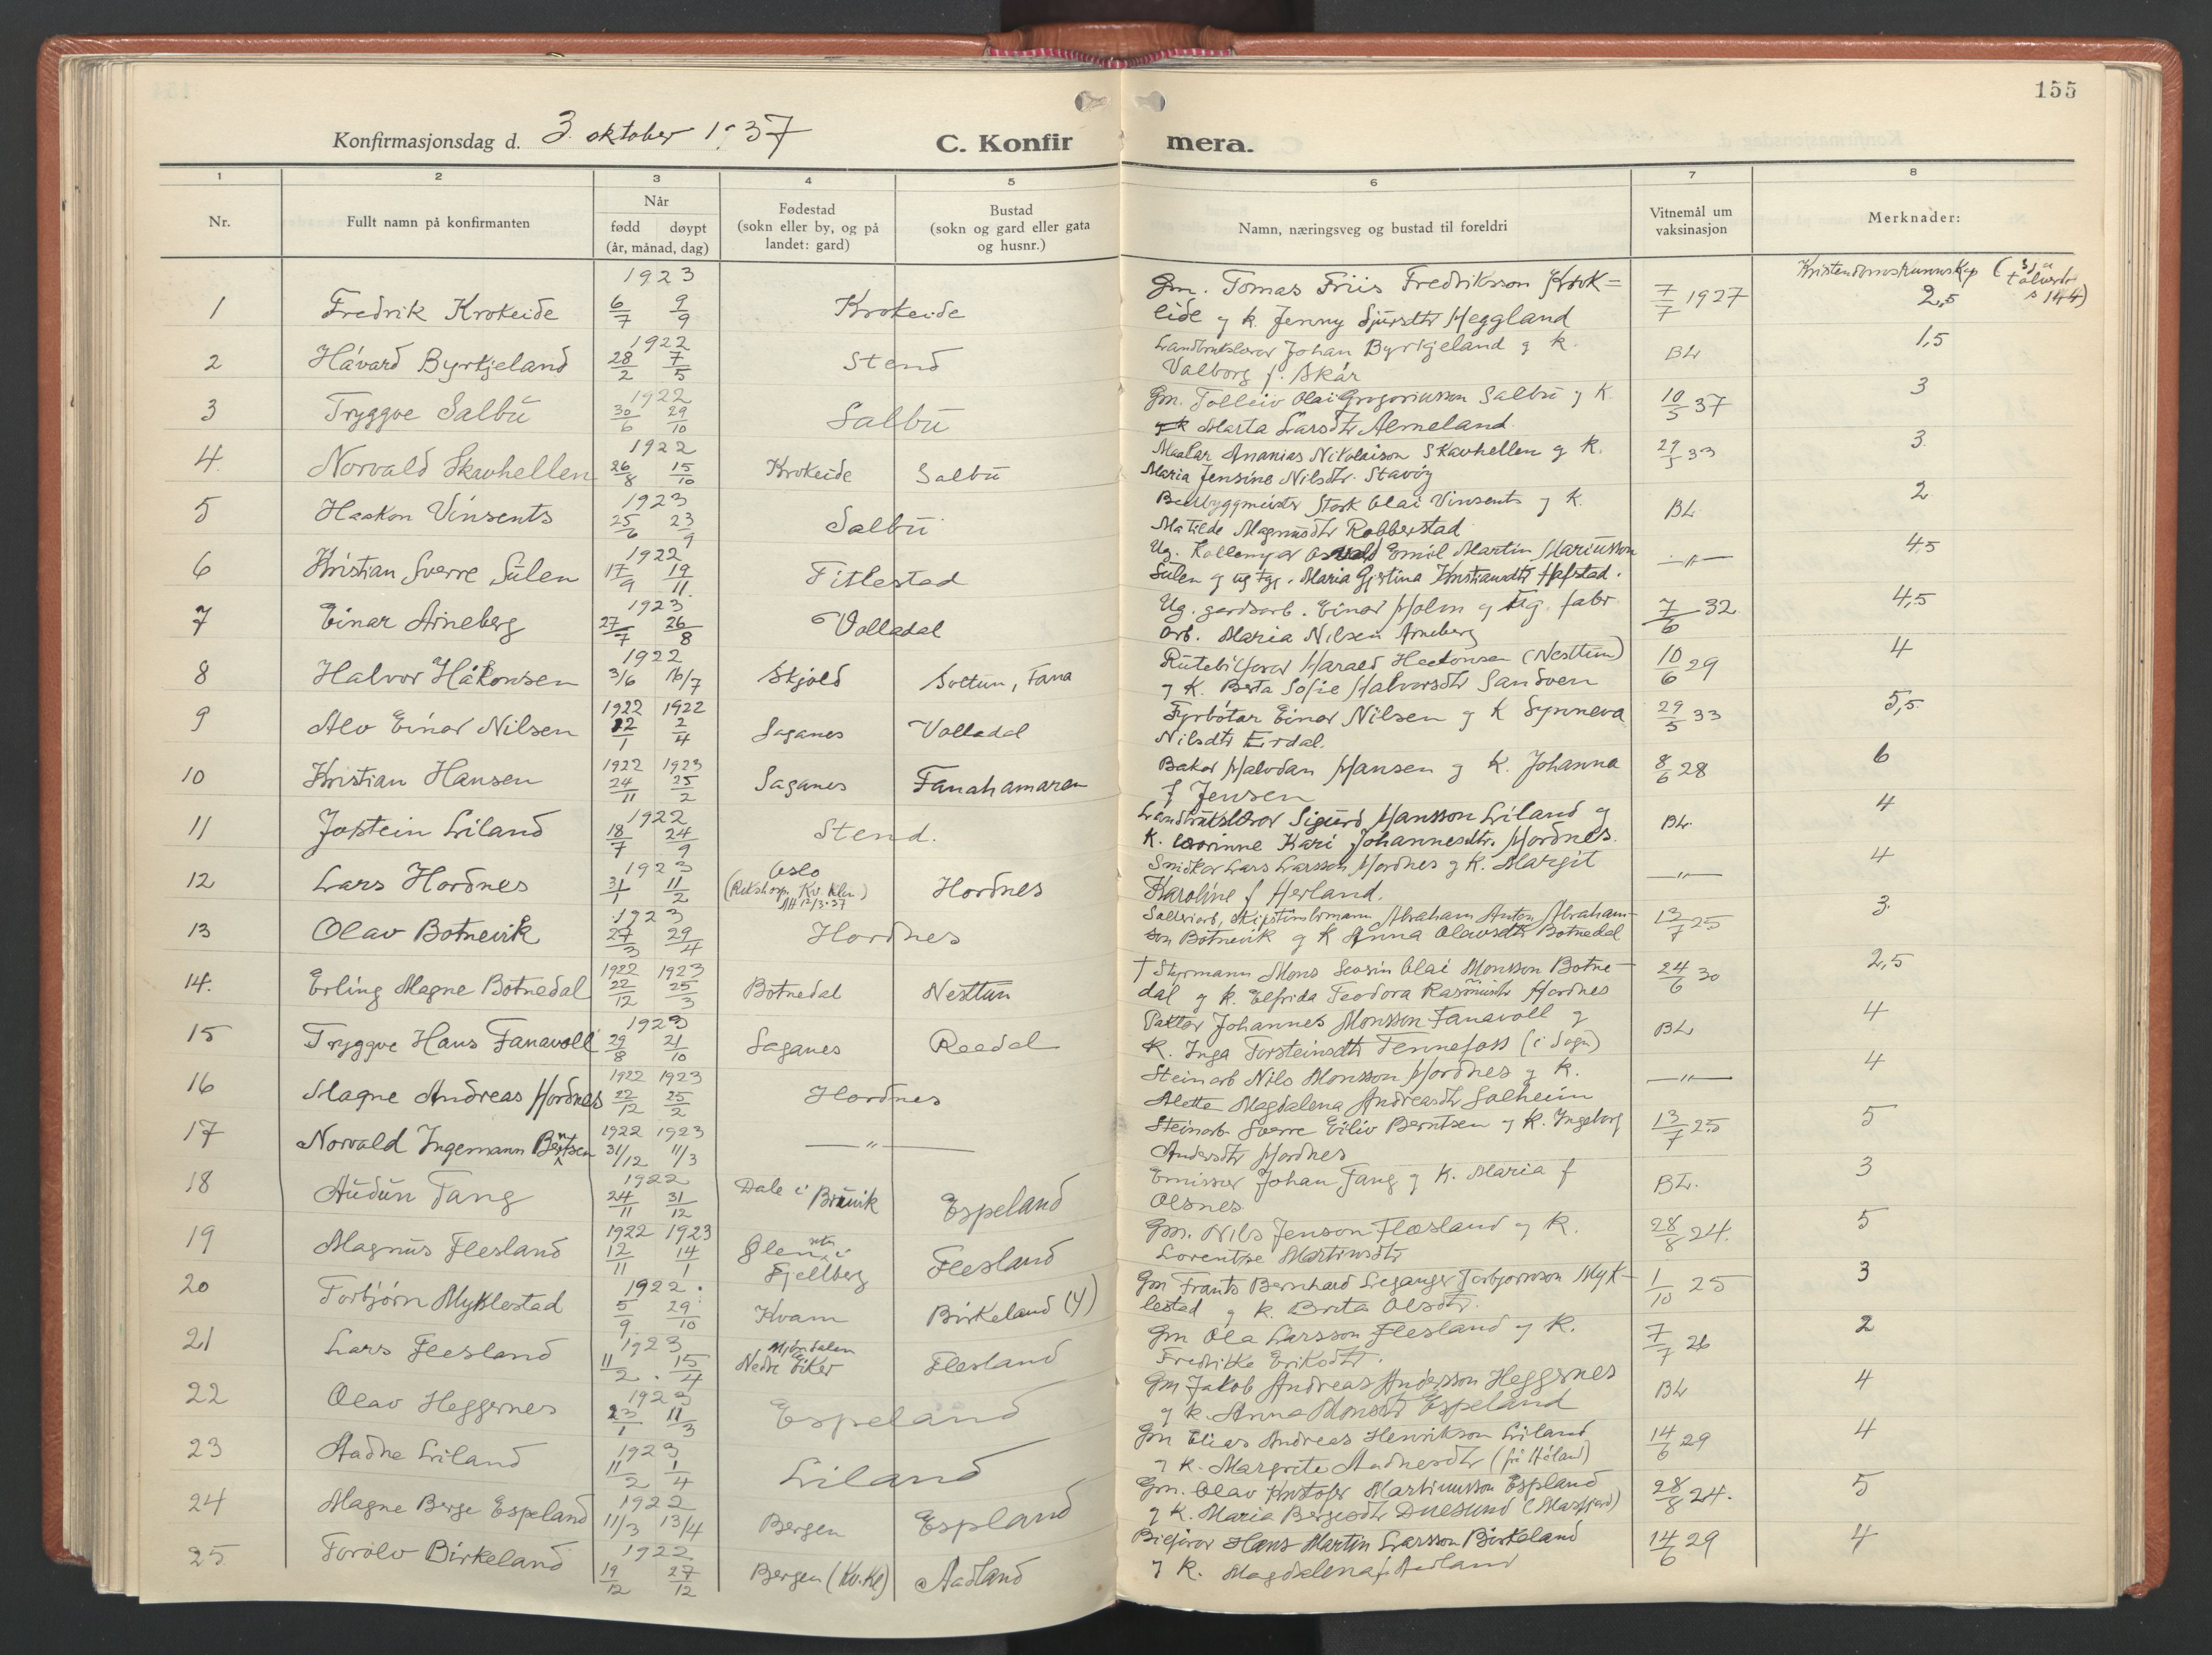 155
Konfirmasjonsdag d. 3. oktober 1937 C. Konfir mera.
1 2 3 4 5 6 7 8
Nr. Fullt namn på konfirmanten Når fødd døypt (år, månad, dag) Fødestad (sokn eller by, og på landet: gard) Bustad (sokn og gard eller gata og husnr.) Namn, næringsveg og bustad til foreldri Vitnemål um vaksinasjon Merknader:
Kristendomskunnskap (sjå s 144)
1 Fredrik Krokeide 1923 6/7 9/9 Krokeide Gm. Tomas Friis Fredriksson Krok= 7/7 1927 2,5
eide og k. Jenny Sjursdtr Heggland
2 Håvard Byrkjeland 1922 28/2 7/5 Stend Landbrukslærar Johan Byrkjeland og k. BL 1,5
Valborg f. Skår
3 Tryggve Salbu 1922 30/6 29/10 Salbu Gm. Tolleiv Olai Gregoriusson Salbu og k. 10/5 37 3
Marta Larsdtr Arneland.
4. Norvald Skavhellen 1922 26/8 15/10 Krokeide Salbu Maalar Ananias Nikolaison Skavhellen og k. 29/5 33 3.
Maria Jensine Nilsdtr. Stavøy
5 Haakon Vinsents 1923 25/6 23/9 Salbu Båtbyggmeister Stork Olai Vinsents og k. BL. 2
Matilde Magnusdtr Robberstad.
6 Kristian Sverre Sulen 1922 17/9 19/11. Titlestad Ug. Emil Martin Mariusson —"— 4,5
Sulen og ug. Maria Gjertina Kristiansdtr Hafstad.
7 Einar Arneberg 1923 27/7 26/8 Volladal Ug. gardsarb. Einar Holm og ug. fabr. 7/6 32 4,5
arb. Maria Nilsen Arneberg
8 Halvor Håkonsen 1922 3/6 16/7 Skjold Soltun, Fana Rutebilførar Harald Haakonsen (Nesttun) 10/6 29 4
og k. Berta Sofie Halvorsdtr Sandven
9 Alv Einar Nilsen 1922 1922 22/1 2/4 Saganes Volladal Fyrbøtar Einar Nilsen og k Synneva 29/5 33 5,5.
Nilsdtr Erdal.
10 Kristian Hansen 1922 1923 24/11 25/2 Saganes Fanahamaren Bakar Halvdan Hansen og k. Johanna 8/6 28 6
f Jensen
11 Jostein Liland 1922 18/7 24/9 Stend. Landbrukslærar Sigurd Hansson Liland og BL. 4
k. Corinne Kari Johannesdtr. Hordnes.
12 Lars Hordnes 1923 31/1 11/2 Oslo (Rikshosp. Kv. Klin.) Hordnes Snidkar Lars Larsson Hordnes og k. Margit —"— 4
Karoline f Herland.
13 Olav Botnevik 1923 27/3 29/4 Hordnes Abraham Anton Abraham- 13/7 25 3.
son Botnevik og k Anna Olavsdtr Botnedal
14. Erling Magne Botnedal 1922 1923 22/12 25/3 Botnedal Nesttun † Styrmann Mons Severin Olai Monsson Botne- 24/6 30 2,5
dal og k. Elfrida Teodora Rasmusdtr Hordnes
15 Tryggve Hans Fanavoll 1923 29/8 21/10 Saganes Raadal Pakkar Johannes Monsson Fanavoll og BL 4
k. Inga Torsteinsdtr Tennefoss (i Sogn)
16 Magne Andreas Hordnes 1922 1923 22/12 25/2 Hordnes Steinarb Nils Monsson Hordnes og k. —"— 4
Alette Magdalena Andreasdtr Solheim
17 Norvald Ingemann Berntsen 1922 1923 31/12 11/3 —"— Steinarb. Sverre Eiliv Berntsen og k. Ingeborg 13/7 25 5
Andersdtr Hordnes
18 Audun Tang 1922 24/11 31/12 Dale i Bruvik Espeland Emissær Johan Tang og k. Maria f BL. 3
Olsnes
19 Magnus Flesland 1922 1923 12/11 14/1 Ølen i Fjellberg Flesland Gm. Nils Jenson Flesland og k. 28/8 24. 5
Lorentse Martinsdtr
20 Torbjørn Myklestad 1922. 5/9 29/10 Kvam Birkeland (Y) Gm Frants Bernhard Leganger Torbjørnson Myk- 1/10 25 3
lestad og k. Brita Olsdtr.
21 Lars Flesland 1923 11/2. 15/4 Mjøndalen Nedre Eiker Flesland Gm Ola Larsson Flesland og k. 7/7 26 2
Fredrikke Eriksdtr.
22 Olav Heggernes 1923 23/1 11/3 Espeland Gm Jakob Andreas Andersson Heggernes BL 4
og k. Anna Monsdtr Espeland
23 Aadne Liland 1923 11/2 1/4 Liland Gm Elias Andreas Henrikson Liland 14/6 29 4
og k. Margrete Aadnesdtr (frå Høland)
24 Magne Berge Espeland 1922 11/3 13/4 Bergen Espland Gm. Olav Kristofer Martinusson Espland 28/8 24. 5
og k. Maria Bergesdtr Duesund (Masfjord)
25 Torolv Birkeland 1922 19/12 27/12 Bergen (Kv.Kl) Aadland Bilførar Hans Martin Larsson Birkeland 14/6 29 4
og k. Magdalena f Aadland